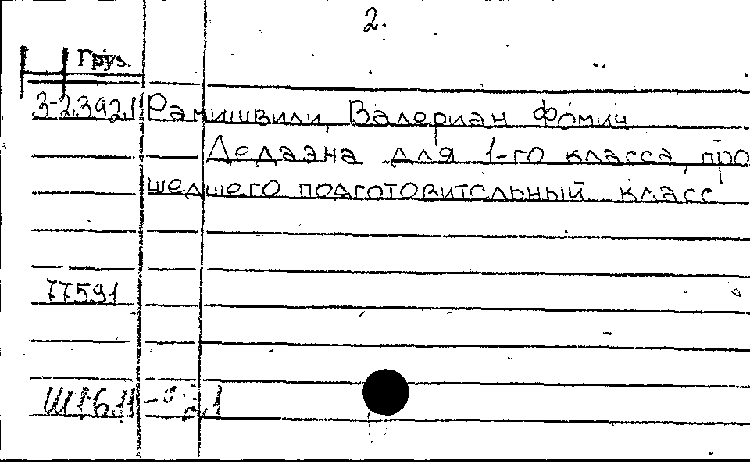 2.
Груз.
3-2.392.1 Рамишвили, Валериан Фомич
Дедаэна для 1-го класса, про
шедшего подготовительный класс
77591
Ш16.11